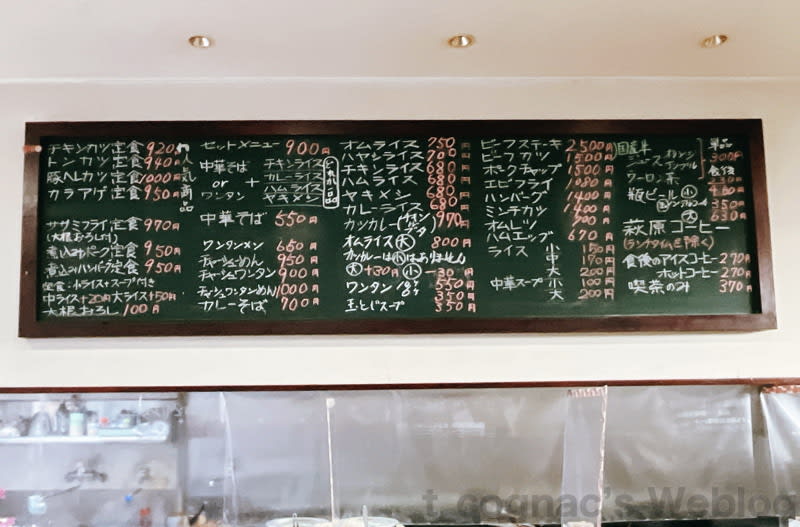 チキンカツ定食 920円
トンカツ定食 940円
豚ヘレカツ定食 1000円
カラアゲ定食 950円
人気商品
ササミフライ定食 970円
(大根おろし付)
煮込みポーク定食 950円
煮込みハンバーグ定食 950円
定食:小ライス+スープ付き
中ライス+20円 大ライス+50円
大根おろし 100円
セットメニュー 900円
中華そば
or
ワンタン
+
チキンライス
カレーライス
ハムライス
ヤキメシ
どれか一品
中華そば 550円
ワンタンメン 650円
チャーシューめん 950円
チャーシューワンタン 900円
チャシュワンタンめん 1000円
カレーそば 700円
オムライス 750円
ハヤシライス 700円
チキンライス 680円
ハムライス 680円
ヤキメシ 680円
カレーライス 680円
カツカレー(チキン 970円
オムライス大 800円
カツカレーは小はありません
大+30円 小-30円
ワンタン 550円
350円
玉とじスープ 350円
ビーフステーキ 2500円
ビーフカツ 1500円
ポークチャップ 1500円
エビフライ
ハンバーグ 1400円
ミンチカツ 1400円
オムレツ
ハムエッグ 670円
ライス 小 150円
中 170円
大 200円
中華スープ 小 100円
大 200円
国産牛
単品
ジュース オレンジ
300円
食後
ウーロン茶
瓶ビール 小
ノンアルコール 350円
大 630円
萩原コーヒー
(ランチタイムを除く)
食後のアイスコーヒー 270円
ホットコーヒー 270円
喫茶のみ 370円
t_cognac's Weblog